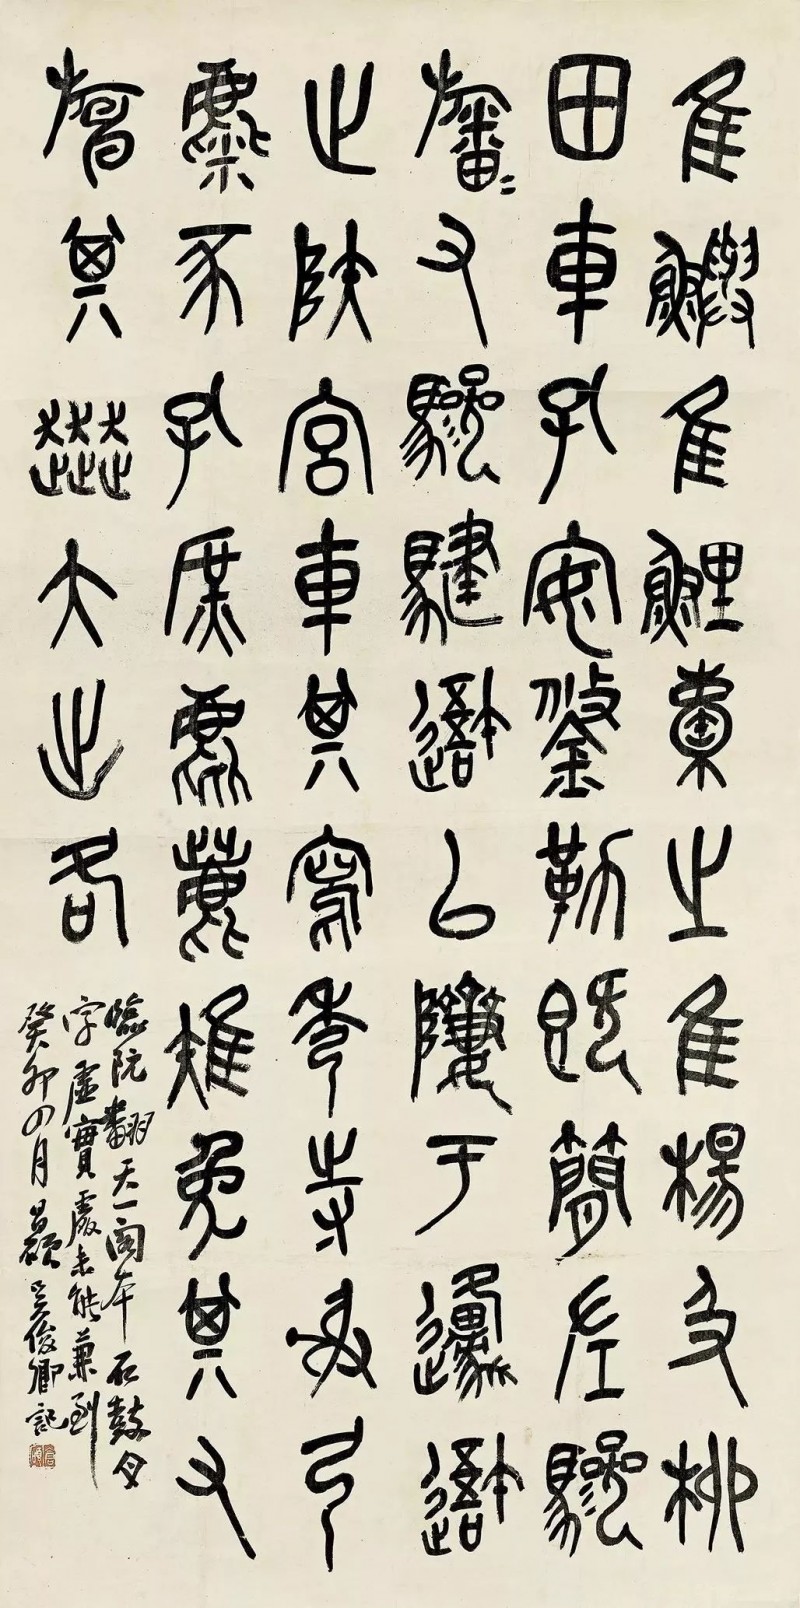 隹鱮隹鯉橐之隹楊及柳
田車孔安鋚勒既簡左驂
旛=又驂騝避以隮于邍避
止陸宮車其寫秀寺射弓
麋豕孔庶麀鹿雉兔其又
旃其奔大出各
臨阮翻天一閣本石鼓文
字虛實處未能兼到
癸卯四月昌碩吳俊卿記